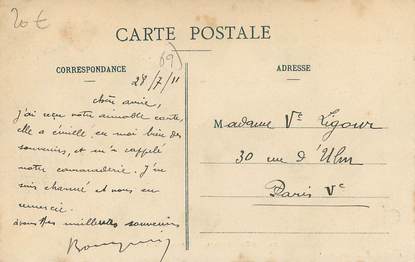 20 €
CARTE POSTALE
69
CORRESPONDANCE
ADRESSE
29/7/11
J'ai reçu votre aimable carte,
elle a éveillé en moi bien des
souvenirs, et m'a rappelé
notre camaraderie. J'en
suis charmé et vous en
remercie.
meilleurs souvenirs
Madame Vve Ligour
30 rue d'Ulm
Paris Ve